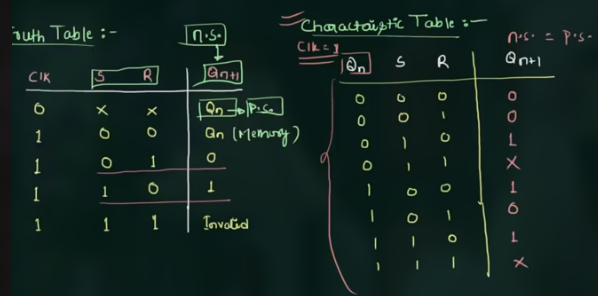 Truth Table :-
n.s.
Clk S R Qn+1
0 x x Qn → p.s.
1 0 0 Qn (Memory)
1 0 1 0
1 1 0 1
1 1 1 Invalid
Characteristic Table :-
Clk = 1
n.s. = p.s.
Qn S R Qn+1
0 0 0 0
0 0 1 0
0 1 0 1
0 1 1 x
1 0 0 1
1 0 1 0
1 1 0 1
1 1 1 x